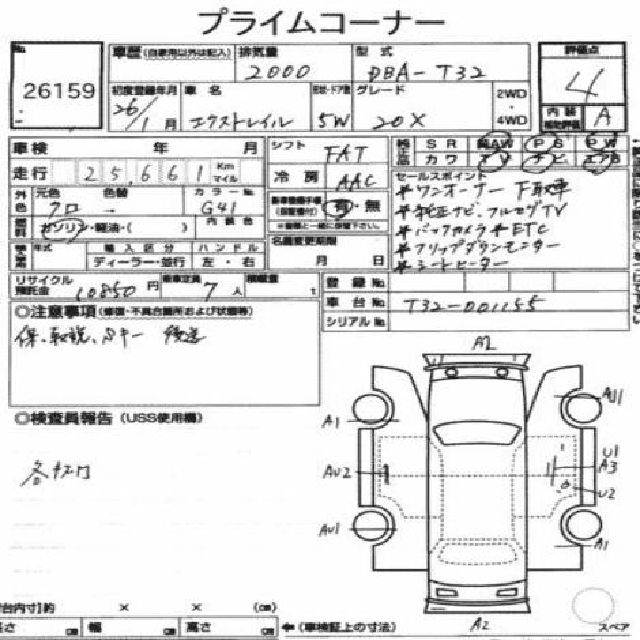 プライムコーナー
No. 26159
車歴 (自家用以外は記入) 排気量 2000 型式 DBA-T32 評価点 4
初度登録年月 26/1月 車名 エクストレイル 形状・ドア数 5W グレード 20X 2WD・4WD 内装補助評価 A
車検 年 月 シフト FAT SR 純AW PS PW
走行 25,661 Km マイル 冷房 AAC カワ TV ナビ エアB
外色 元色 クロ 色替 - カラーNo. G41 内装色
燃料 ガソリン・軽油・( )
新車整備手帳(保証書付) 有・無
年式 輸入区分 ディーラー・並行 ハンドル 左・右
名義変更期限 月 日
セールスポイント
*ワンオーナー 下取車
*純正ナビ、フルセグTV
*バックカメラ *ETC
*フリップダウンモニター
*シートヒーター
リサイクル預託金 10850円 乗車定員 7人 積載量 t
登録No.
車台No. T32-001155
シリアルNo.
◎注意事項(修復・不具合箇所および状態等)
保、取説、Sキー 後送
◎検査員報告(USS使用欄)
各キズ凹
A2
A1
A4
AU2
AU1
AU1
U1
A3
U2
A1
A2
スペア
台内寸]約 × × (㎝)
長さ ㎝ 幅 ㎝ 高さ ㎝ ←(車検証上の寸法)